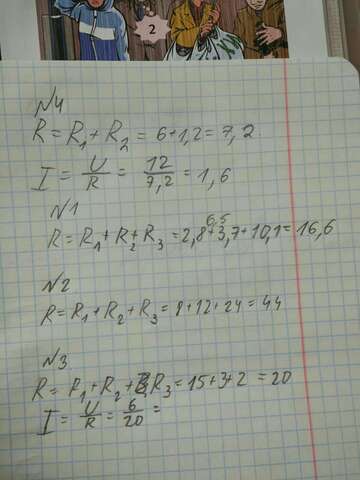 2
№4
R = R1 + R2 = 6+1,2 = 7,2
I = U/R = 12/7,2 = 1,6
№1
6,5
R = R1 + R2 + R3 = 2,8+3,7+10,1 = 16,6
№2
R = R1 + R2 + R3 = 8+12+24 = 44
№3
R = R1 + R2 + R3 = 15+3+2 = 20
I = U/R = 6/20 =